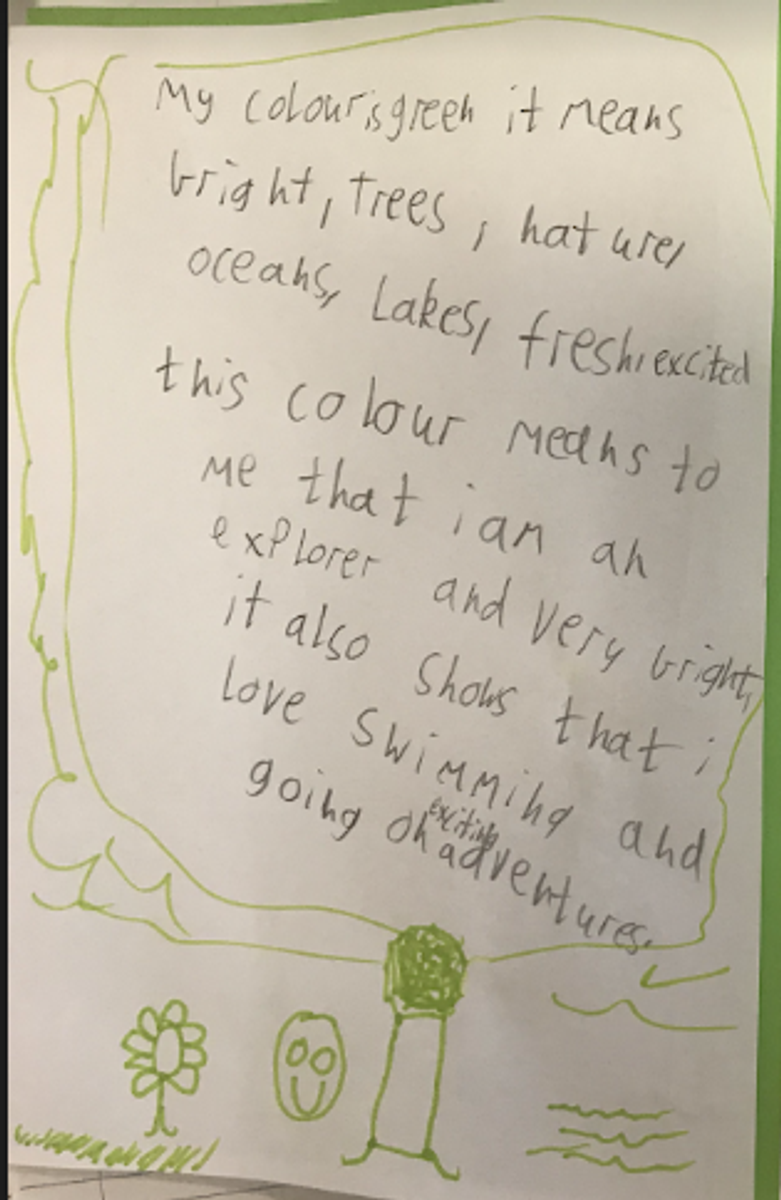 My colour is green it means
bright, Trees, nature,
oceans, Lakes, fresh, excited
this colour means to
me that i am an
explorer and very bright,
it also shows that i
love swimming and
going on exciting adventures.